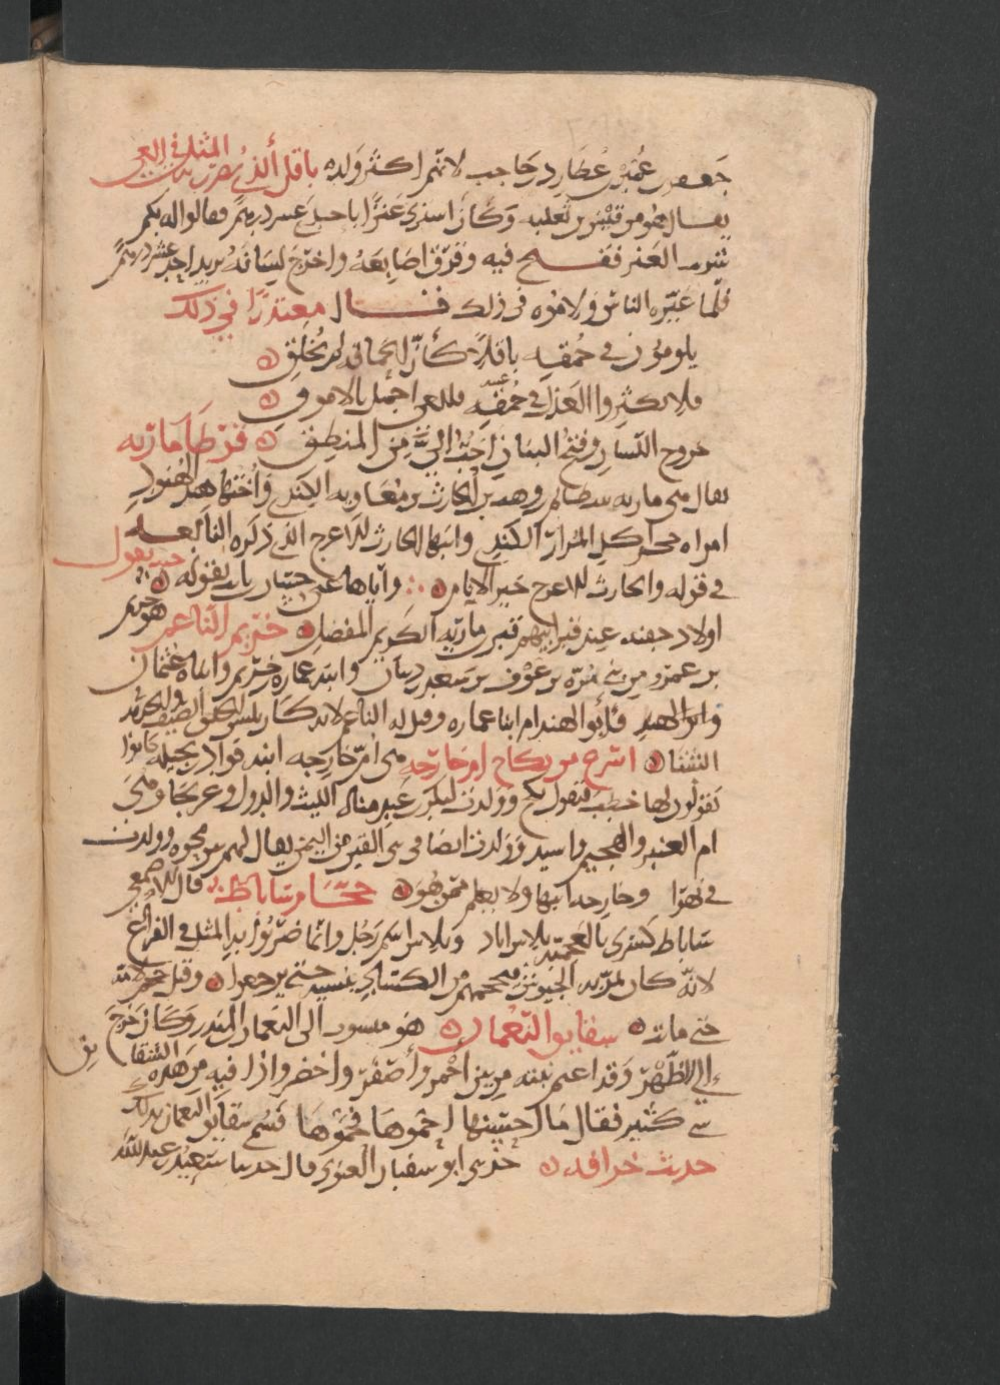 جعفر عمير عطارد حاجب لانهم اكثر ولده باقل الذي يضرب به المثل في العي
يقال هو من قيس بن ثعلبة وكان اشترى عنزا باحد عشر درهم فقالوا له بكم
العنز ففتح فيه وفرّق اصابعه واخرج لسانه يريد احد عشر درهم
فلما عيّره الناس ولاموه في ذلك قال معتذرًا في ذلك
يلومون في حمقه باقلا كأن الحماقة لم تخلق
فلا تكثروا العذل في حمقه فللعي اجمل بالاموق
خروج اللسان وفتح البنان احبّ الي من المنطق قرطا مارية
يقال هي مارية بنت ظالم وهب بن الحارث بن معاوية الكندي واختها هند الهنود
امراه حجر اكل المرار الكندي وابنها الحارث الاعرج الذي ذكره النابغة
في قوله والحارث الاعرج خير الانام واياها عنى حسان بن ثابت بقوله حيث يقول
اولاد جفنة عند قبر ابيهم قبر مارية الكريم المفضل خريم الناعم هو خريم
بن عمرو من بني مرة بن عوف بن سعد بن ذبيان وابنه عمارة بن خريم وابناه عثمان
وابو الهيذام ابنا عمارة وقيل له الناعم لانه كان يلبس الخلق في الصيف والجديد
الشتا اسرع من نكاح ام خارجة هي ام خارجة ابنة بجيلة كانوا
يقولون لها خطب فتقول نكح وولدت لبكر بن عبد مناه الليث والدول وعريجا وهي
ام العنبر والهجيم واسيد وولدت ايضا في بني القين من اليمن يقال لهم وولدت
في بهرا وخارجة ابنها ولا يعلم ممن هو حجّام ساباط قال الاصمعي
ساباط كسرى بالعجمية بلاس اباد وبلاس اسم رجل وانما ضربوا به المثل في الفراغ
لانه كان تمر به الجيوش فيحجمهم من الكساد بنسيئة حتى يرجعوا وقيل حجم امه
حتى ماتت شقايق النعمان هو منسوب الى النعمان بن المنذر وكان خرج
الى الظهر وقد اعتم نبته من بين احمر واصفر واخضر واذا فيه من هذه الشقايق
شي كثير فقال ما احسنها احموها فحموها فسمي شقايق النعمان بذلك
حديث خرافة حدثني ابو سفيان الغنوي قال حدثنا سعيد بن عبد الله